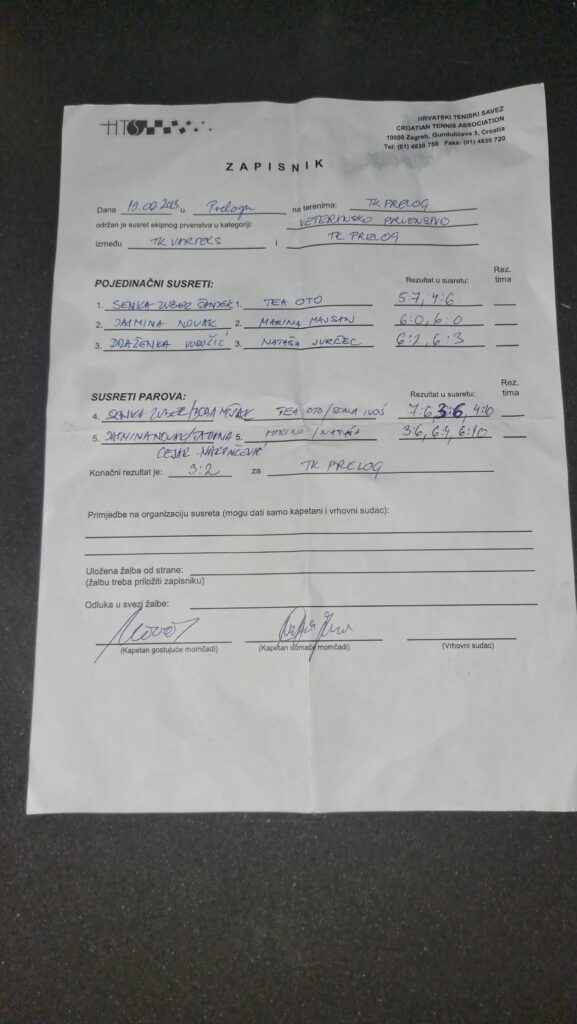 HTS
HRVATSKI TENISKI SAVEZ
CROATIAN TENNIS ASSOCIATION
10000 Zagreb, Gundulićeva 3, Croatia
Tel: (01) 4830 756 Faks: (01) 4830 720
ZAPISNIK
Dana u Prelogu na terenima: TK PRELOG
održan je susret ekipnog prvenstva u kategoriji: VETERANSKO PRVENSTVO
između TK VARTEKS i TK PRELOG
POJEDINAČNI SUSRETI: Rezultat u susretu: Rez. tima
1. SENKA ZUBER ŠANDEK 1. TEA OTO 5:7, 4:6
2. JASMINA NOVAK 2. MARINA MAJSAN 6:0, 6:0
3. DRAŽENKA VODUČIĆ 3. NATAŠA JURČEC 6:2, 6:3
SUSRETI PAROVA: Rezultat u susretu: Rez. tima
4. SENKA ZUBER/ TEA OTO/SONJA 7:6, 3:6, 4:10
5. JASMINA NOVAK/TATJANA 5. MARINA/NATAŠA 3:6, 6:4, 6:10
CESAR
Konačni rezultat je: 3:2 za TK PRELOG
Primjedbe na organizaciju susreta (mogu dati samo kapetani i vrhovni sudac):
Uložena žalba od strane:
(žalbu treba priložiti zapisniku)
Odluka u svezi žalbe:
(Kapetan gostujuće momčadi) (Kapetan domaće momčadi) (Vrhovni sudac)